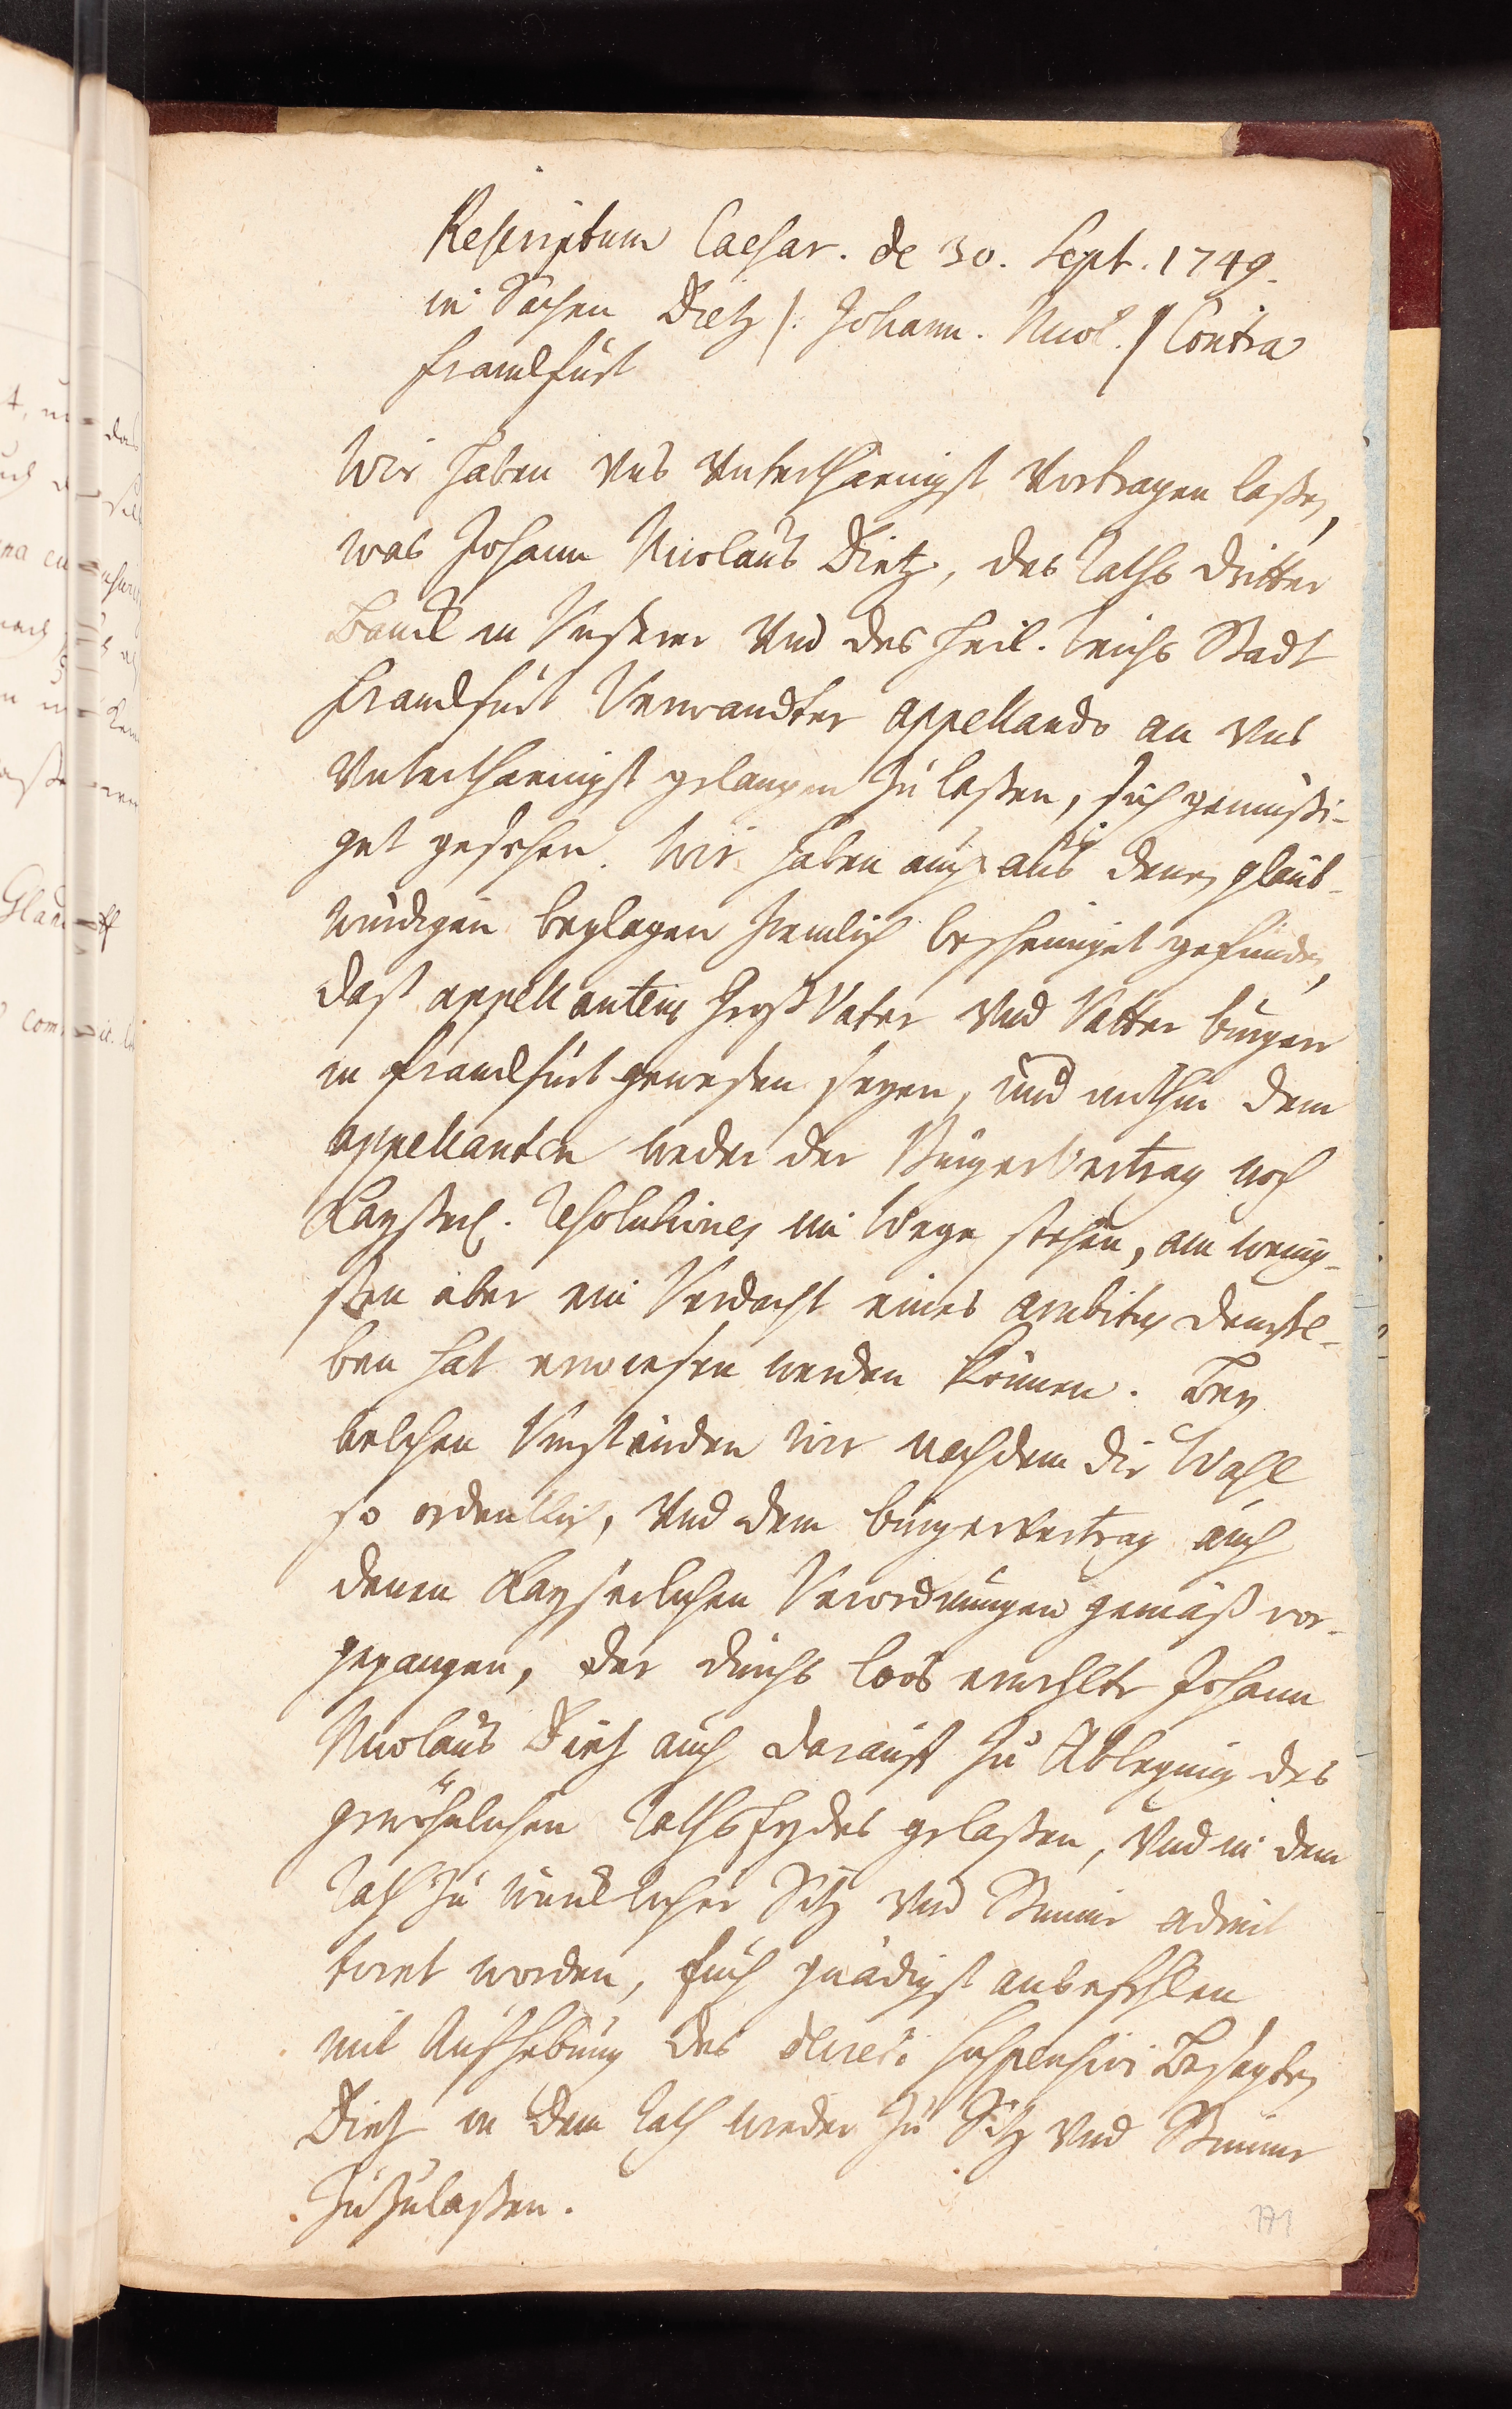 Rescriptum Caesar. de 30. Sept. 1749.
in Sachen Dietz /: Johann. Nicol. / Contra
Franckfurt
Wir haben Uns Unterthaenigst Vortragen laßen,
was Johann Nicolaus Dietz, des Raths dritter
Banck in Unserer Und des Heil. Reichs Stadt
Franckfurt Verwandter appellando an Uns
Unterthaenigst gelangen zu laßen, sich gemüßi-
get gesehen. Wir haben auch aus denen glaub-
würdigen beylagen ziemlich bescheiniget gefunden,
dast appellantens Groß Vater Und Vatter burgere
in Franckfurt gewesen seyen, und mithin dem
appellanten weder der Burger Vertrag noch
Kayserl. Resolutiones im Wege stehen, am wenig-
sten aber ein Verdacht eines ambitus demsel-
ben hat erwiesen werden können. Bey
welchen Umständen Wir nachdem die Wahl
so ordentlich, Und dem burgervertrag auch
denen Kayserlichen Verordnungen gemäß vor-
gegangen, der durchs loos erwehlte Johann
Nicolaus Dietz auch darauf zu Ablegung des
gewöhnlichen Raths Eydes gelaßen, Und in dem
Rath zu würcklicher Sitz Und Stimme admit
tiret worden, Euch gnädigst anbefehlen
mit Aufhebung des effectus suspensivi Besagten
Dietz in dem Rath wieder zu Sitz Und Stimme
zuzulaßen.
171